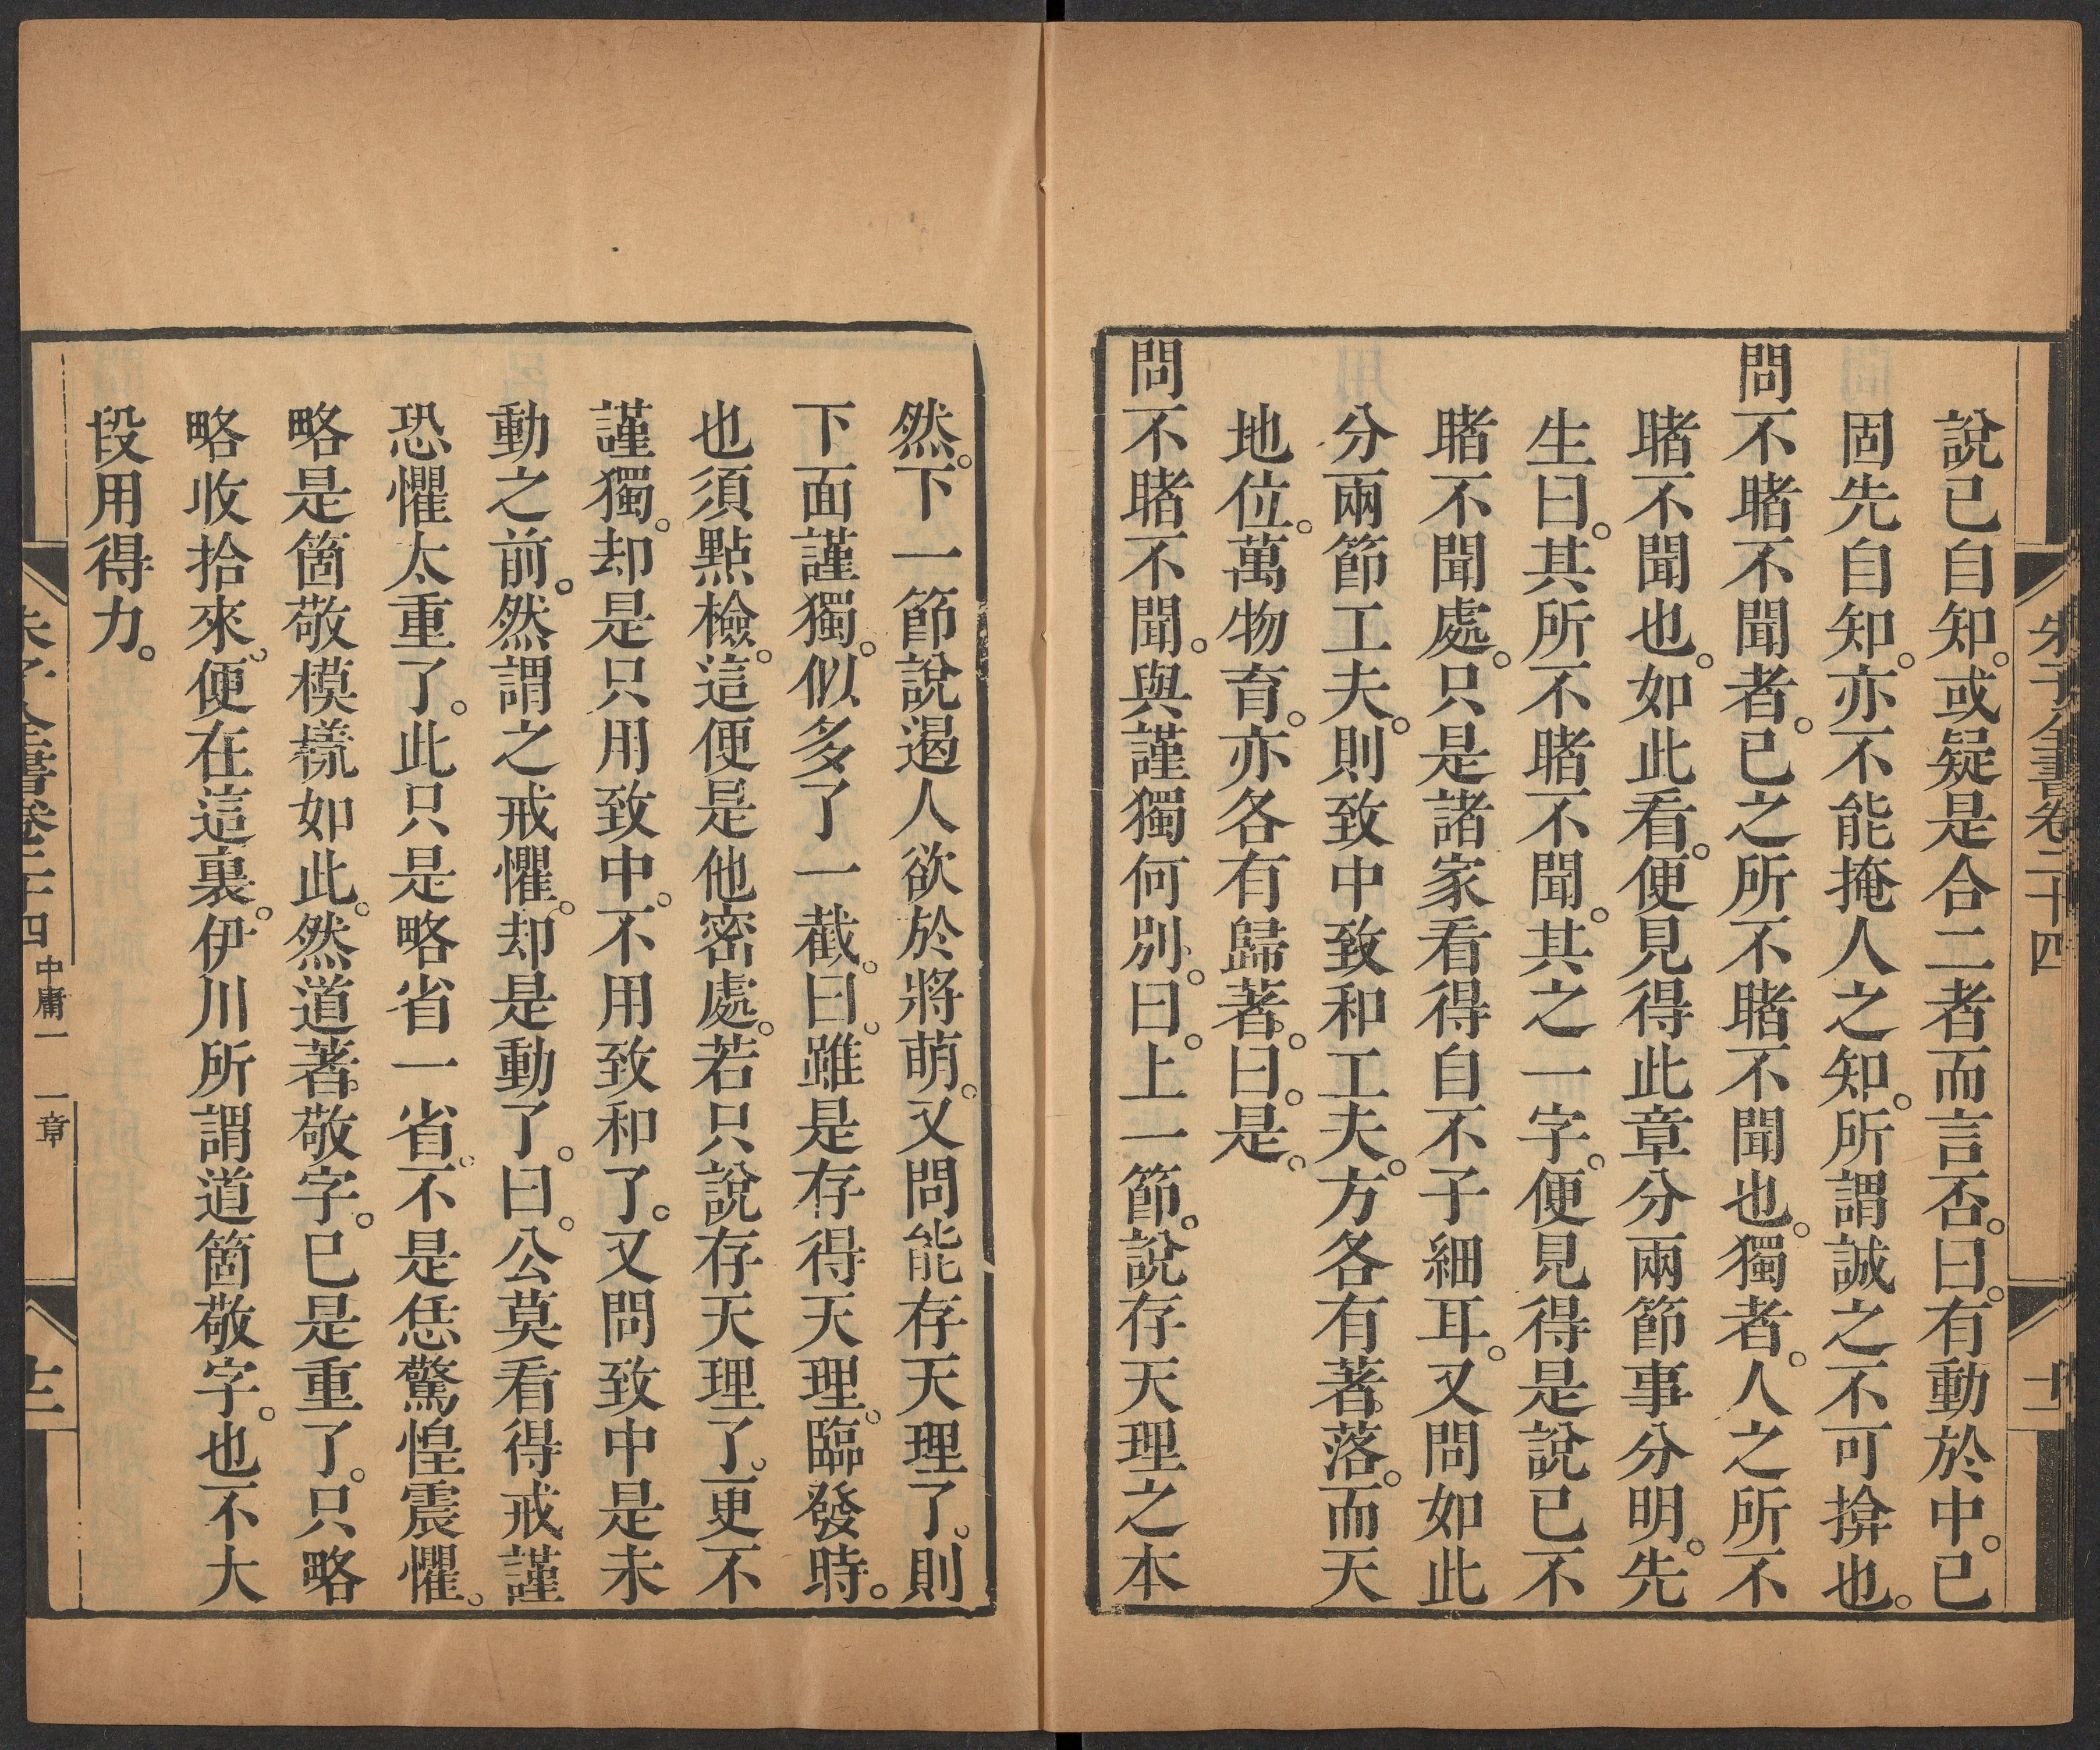 朱子全書卷二十四
十二
說已自知。或疑是合二者而言否。曰。有動於中。已
固先自知。亦不能掩人之知。所謂誠之不可揜也。
問不睹不聞者。已之所不睹不聞也。獨者。人之所不
睹不聞也。如此看。便見得此章分兩節事分明。先
生曰。其所不睹不聞。其之一字。便見得是說已不
睹不聞處。只是諸家看得自不子細耳。又問如此
分兩節工夫。則致中致和工夫。方各有著落。而天
地位。萬物育。亦各有歸著。曰。是。
問不睹不聞。與謹獨何別。曰。上一節。說存天理之本
然。下一節說遏人欲於將萌。又問能存天理了。則
下面謹獨。似多了一截。曰。雖是存得天理。臨發時。
也須點檢。這便是他密處。若只說存天理了。更不
謹獨。却是只用致中。不用致和了。又問致中是未
動之前。然謂之戒懼。却是動了。曰。公莫看得戒謹
恐懼太重了。此只是略省一省。不是恁驚惶震懼。
略是箇敬模㨾如此。然道著敬字。已是重了。只略
略收拾來。便在這裏。伊川所謂道箇敬字。也不大
段用得力。
朱子全書卷二十四 中庸一 一章
十三